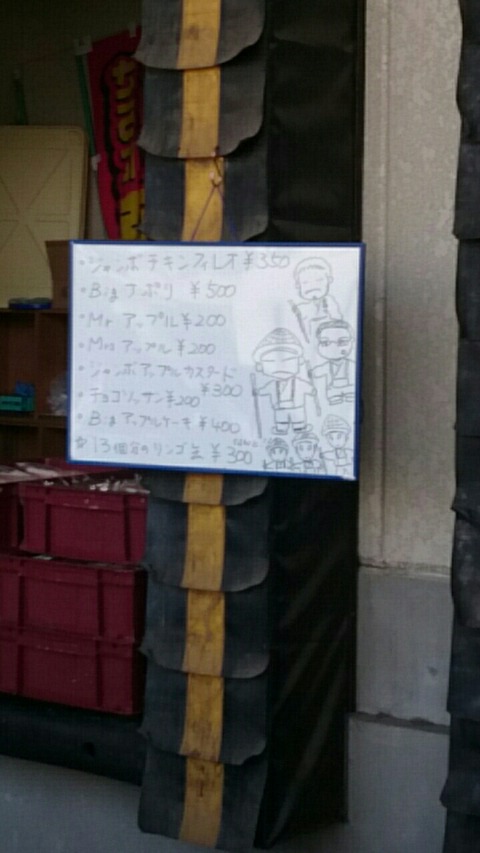 ・ジャンボチキンフィレオ ¥350
・Big ナポリ ¥500
・Mr アップル ¥200
・Mrs アップル ¥200
・ジャンボアップルカスタード ¥300
・チョコソッサン ¥200
・Big アップルケーキ ¥400
☆13個分のリンゴ ¥300